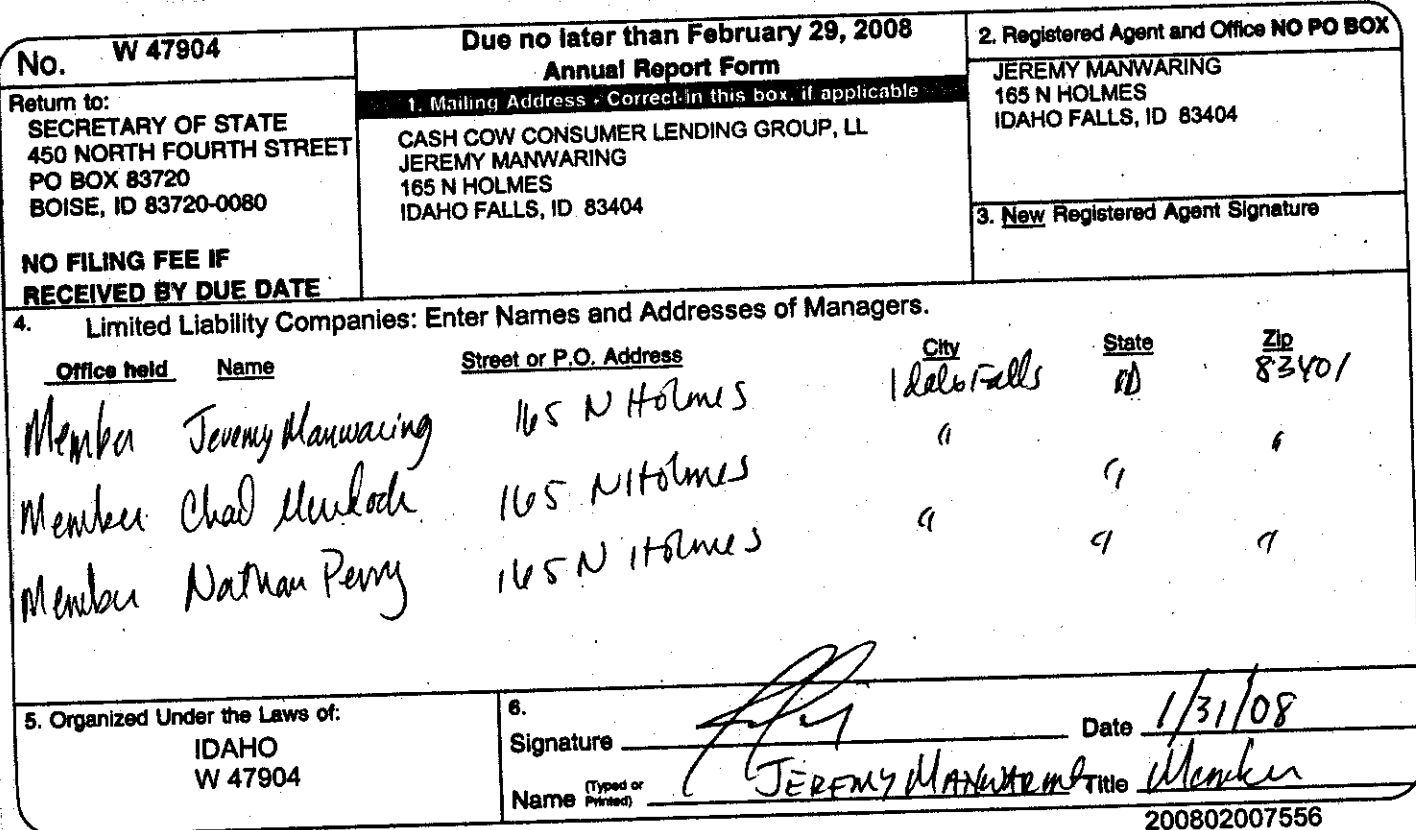 No. W 47904
Return to:
SECRETARY OF STATE
450 NORTH FOURTH STREET
PO BOX 83720
BOISE, ID 83720-0080
NO FILING FEE IF
RECEIVED BY DUE DATE
Due no later than February 29, 2008
Annual Report Form
1. Mailing Address - Correct in this box, if applicable
CASH COW CONSUMER LENDING GROUP, LL
JEREMY MANWARING
165 N HOLMES
IDAHO FALLS, ID 83404
2. Registered Agent and Office NO PO BOX
JEREMY MANWARING
165 N HOLMES
IDAHO FALLS, ID 83404
3. New Registered Agent Signature
4. Limited Liability Companies: Enter Names and Addresses of Managers.
Office held Name Street or P.O. Address City State Zip
Member Jeremy Manwaring 165 N Holmes Idaho Falls ID 83401
Member Chad Murdock 165 N Holmes " " "
Member Nathan Perry 165 N Holmes " " "
5. Organized Under the Laws of:
IDAHO
W 47904
6.
Signature Date 1/31/08
Name (Typed or Printed) JEREMY MANWARING Title Member
200802007556